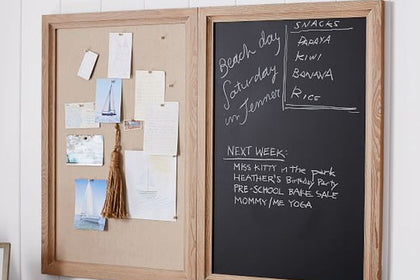 Beach day
Saturday
in Jenner
SNACKS
PAPAYA
KIWI
BANANA
RICE
NEXT WEEK:
MISS KITTY in the park
HEATHER'S Birthday Party
PRE-SCHOOL BAKE SALE
MOMMY/ME YOGA